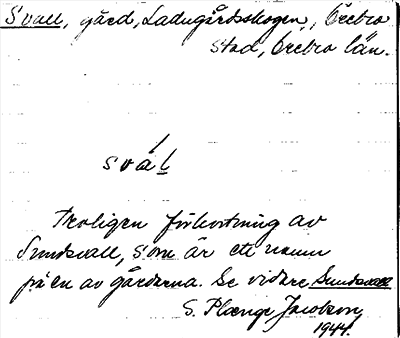 Svall, gård, Ladugårdsskogen, Örebro
stad, Örebro län.
svål
Troligen förkortning av
Sundsvall, som är ett namn
på en av gårdarna. Se vidare Sundsvall
S. Plænge Jacobson
1944.